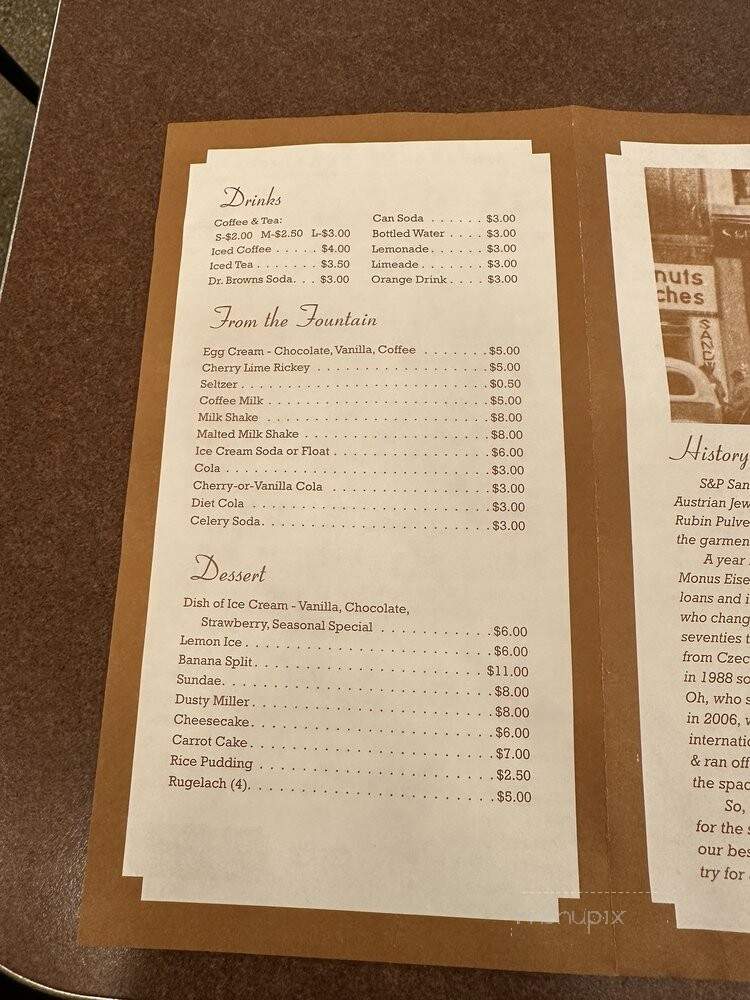 Drinks
Coffee & Tea:
S-$2.00 M-$2.50 L-$3.00
Iced Coffee . . . . . $4.00
Iced Tea . . . . . . . $3.50
Dr. Browns Soda. . . $3.00
Can Soda . . . . . . $3.00
Bottled Water . . . . $3.00
Lemonade. . . . . . $3.00
Limeade. . . . . . . $3.00
Orange Drink . . . . $3.00
From the Fountain
Egg Cream - Chocolate, Vanilla, Coffee . . . . . . . $5.00
Cherry Lime Rickey . . . . . . . . . . . . . . . . . . . $5.00
Seltzer . . . . . . . . . . . . . . . . . . . . . . . . . . . $0.50
Coffee Milk . . . . . . . . . . . . . . . . . . . . . . . . $5.00
Milk Shake . . . . . . . . . . . . . . . . . . . . . . . . $8.00
Malted Milk Shake . . . . . . . . . . . . . . . . . . . . $8.00
Ice Cream Soda or Float . . . . . . . . . . . . . . . . . $6.00
Cola . . . . . . . . . . . . . . . . . . . . . . . . . . . . $3.00
Cherry-or-Vanilla Cola . . . . . . . . . . . . . . . . . $3.00
Diet Cola . . . . . . . . . . . . . . . . . . . . . . . . . $3.00
Celery Soda. . . . . . . . . . . . . . . . . . . . . . . . $3.00
Dessert
Dish of Ice Cream - Vanilla, Chocolate,
Strawberry, Seasonal Special . . . . . . . . . . . $6.00
Lemon Ice . . . . . . . . . . . . . . . . . . . . . . . . $6.00
Banana Split. . . . . . . . . . . . . . . . . . . . . . . $11.00
Sundae. . . . . . . . . . . . . . . . . . . . . . . . . . $8.00
Dusty Miller. . . . . . . . . . . . . . . . . . . . . . . $8.00
Cheesecake. . . . . . . . . . . . . . . . . . . . . . . $6.00
Carrot Cake. . . . . . . . . . . . . . . . . . . . . . . $7.00
Rice Pudding . . . . . . . . . . . . . . . . . . . . . . $2.50
Rugelach (4). . . . . . . . . . . . . . . . . . . . . . . $5.00
nuts
ches
SAND
History
S&P San
Austrian Jew
Rubin Pulve
the garmen
A year
Monus Eise
loans and i
who chang
seventies t
from Czec
in 1988 so
Oh, who s
in 2006, w
internatio
& ran off
the spac
So,
for the s
our bes
try for
menupix